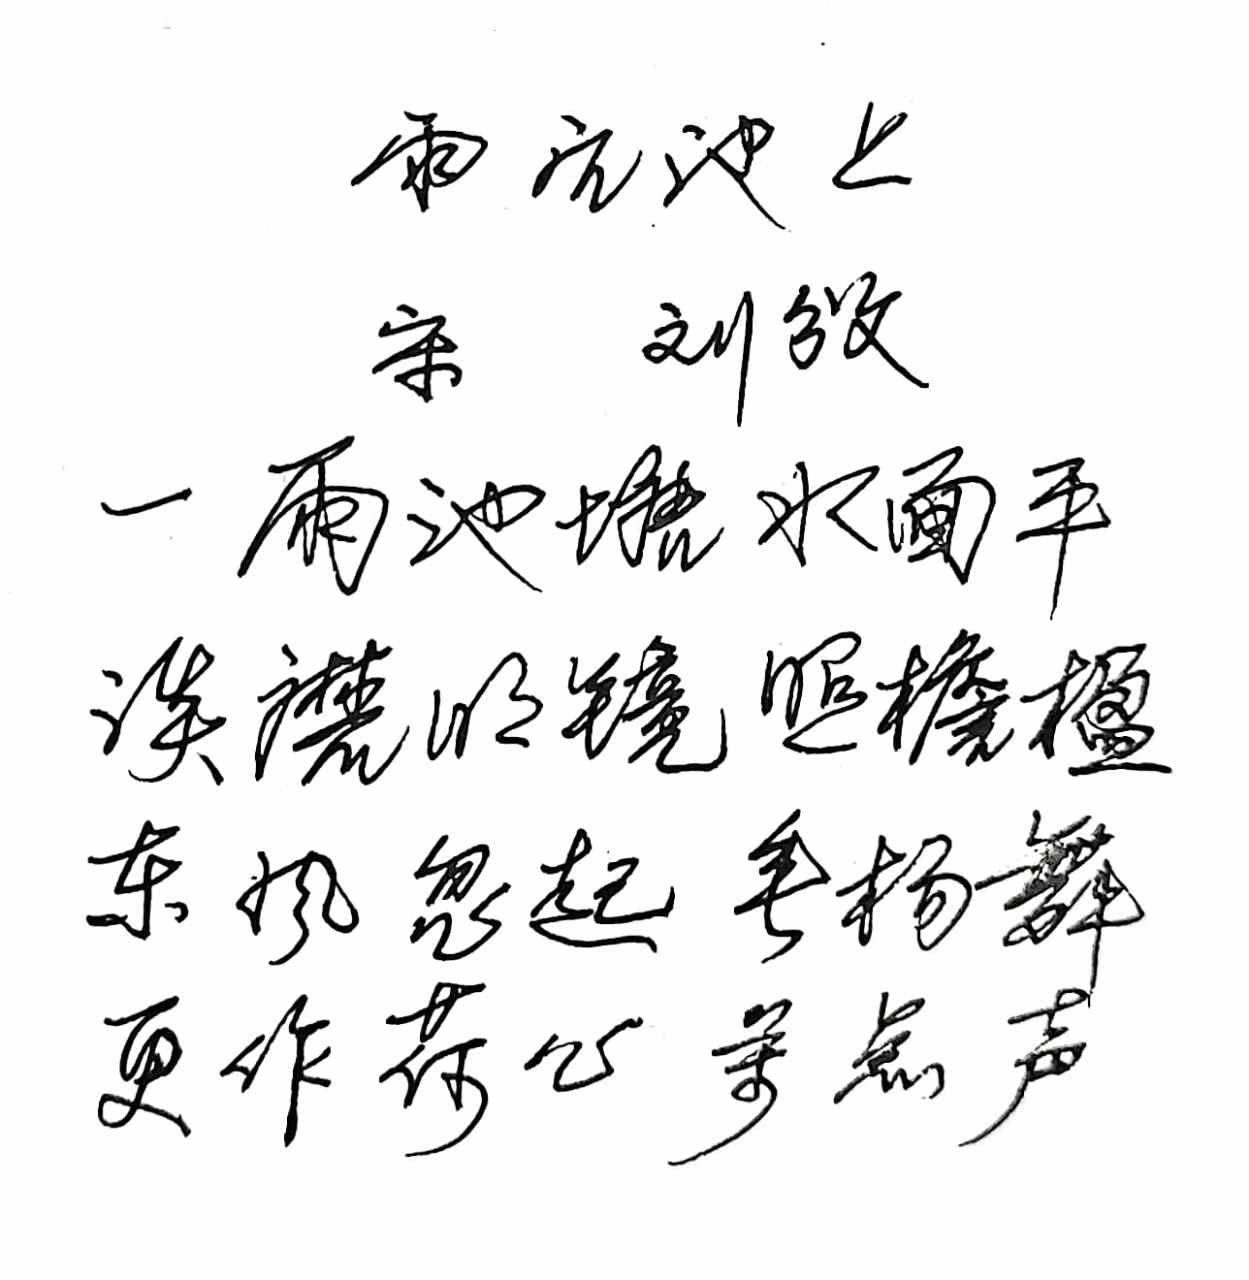 雨后池上
宋 刘攽
一雨池塘水面平
淡磨明镜照檐楹
东风忽起垂杨舞
更作荷心万点声